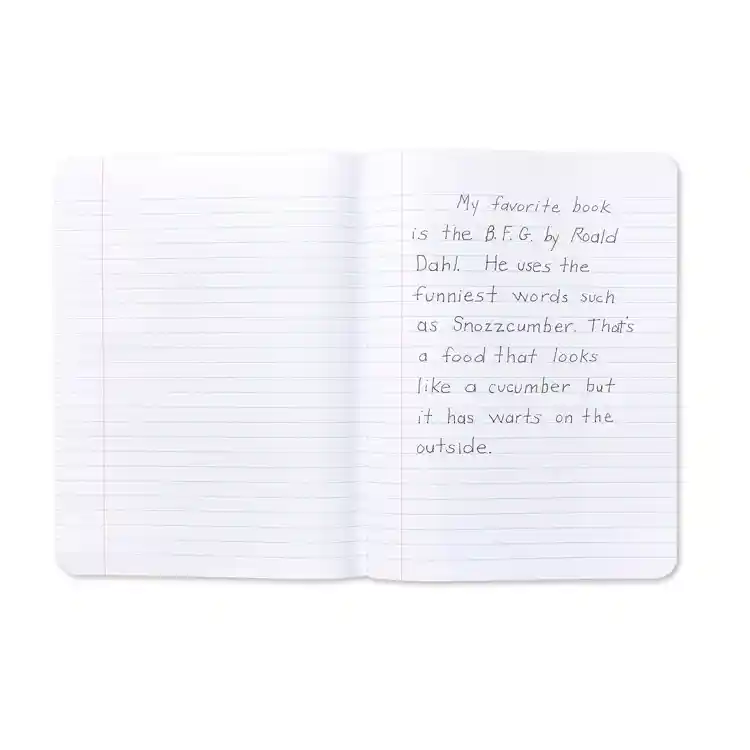 My favorite book
is the B.F.G. by Roald
Dahl. He uses the
funniest words such
as Snozzcumber. That's
a food that looks
like a cucumber but
it has warts on the
outside.